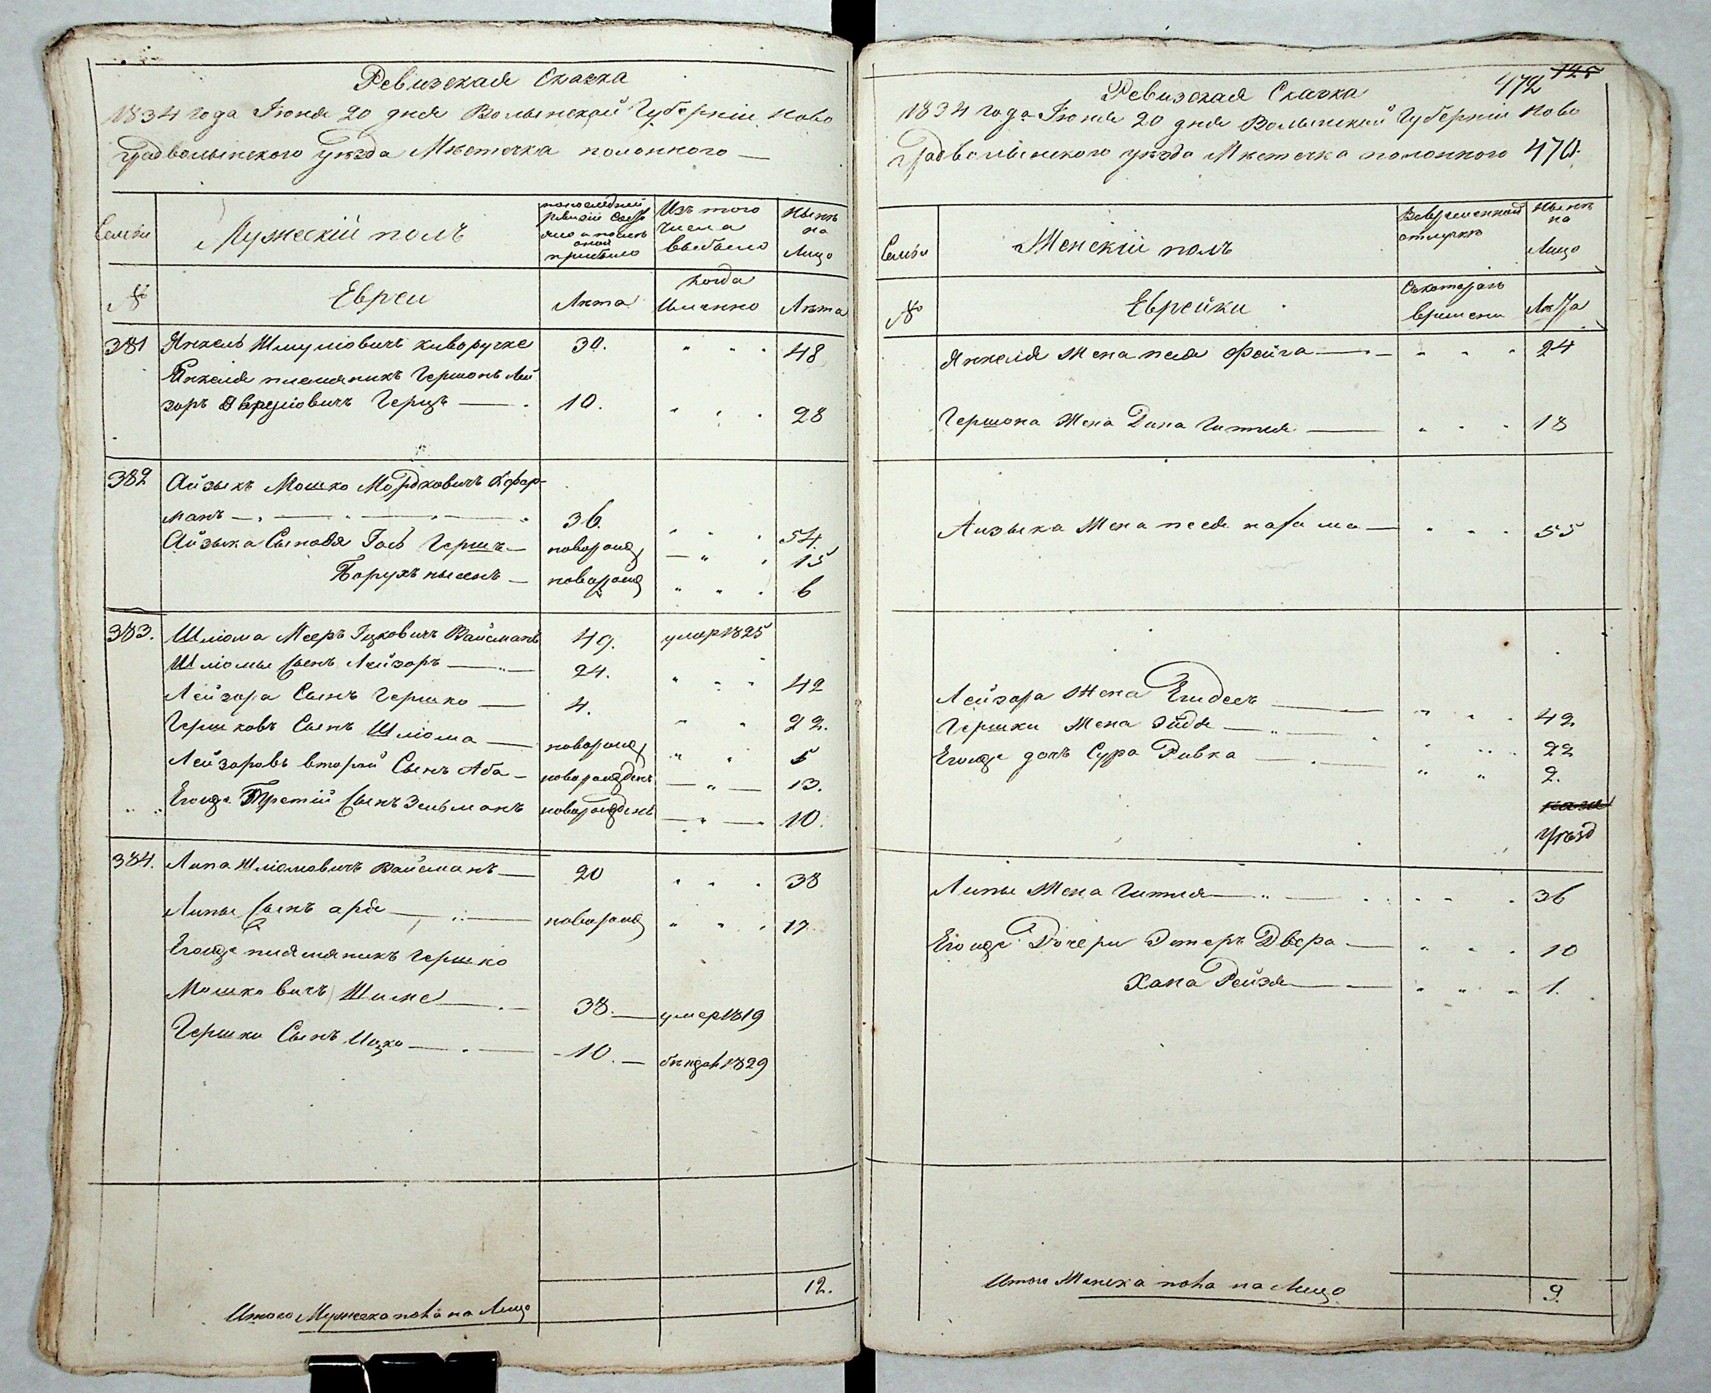 Ревизская Сказка
1834 года Іюня 20 дня Волынской Губерніи Ново
градволынского уезда Местечка полонного
Семьи
Мужескій полъ
по последней
ревизіи состо
яло и после
оной
прибыло
Изъ того
числа
выбыло
Ныне
на
Лицо
№
Евреи
Лета
когда
именно
Лета
381 Янкель Шмуліовичъ киворучке 30. 48
Янкеля племяникъ Гершонъ Лей
зоръ Герцъ 10. 28
382 Айзыкъ Мошко Мордковичъ
манъ 36. 54.
Айзыка Сыновя Гершъ новорожд 15
Борухъ новорожд 6
383. Шліома Мееръ Іцковичъ Вайсманъ 49. умер 1825
Шліомы Сынъ Лейзоръ 24. 42
Лейзора Сынъ Гершко 4. 22.
Гершковъ Сынъ Шліома новорожд 5
Лейзоровъ второй Сынъ Аба новорожденъ 13.
Егожъ Третій Сынъ Зельманъ новорожденъ 10.
384. Липа Шліомовичъ Вайсманъ 20 38
Липы Сынъ новорожд 17.
Егожъ племяникъ Гершко
Мошковичъ 38. умер 1819
Гершки Сынъ Ицко 10. 1829
12.
Итого Мужеска пола на Лицо
472 125
Ревизская Сказка
1834 года Іюня 20 дня Волынской Губерніи Ново
градволынского уезда Местечка полонного 470.
Семьи
Женскій полъ
Во временной
отлучке
Ныне
на
Лицо
№
Еврейки
Скотораго
времени
Лета
Янкеля Жена Фейга 24
Гершона Жена Дина Гитля 18
Айзыка Жена песя 55
Лейзора Жена 42
Гершки Жена Эйдя 22
Егожъ дочь Сура Ривка 2.
уезд
Липы Жена Гитля 36
Егожъ Дочери Эстеръ Двера 10
Хана Рейзя 1.
Итого Женска пола на Лицо 9.